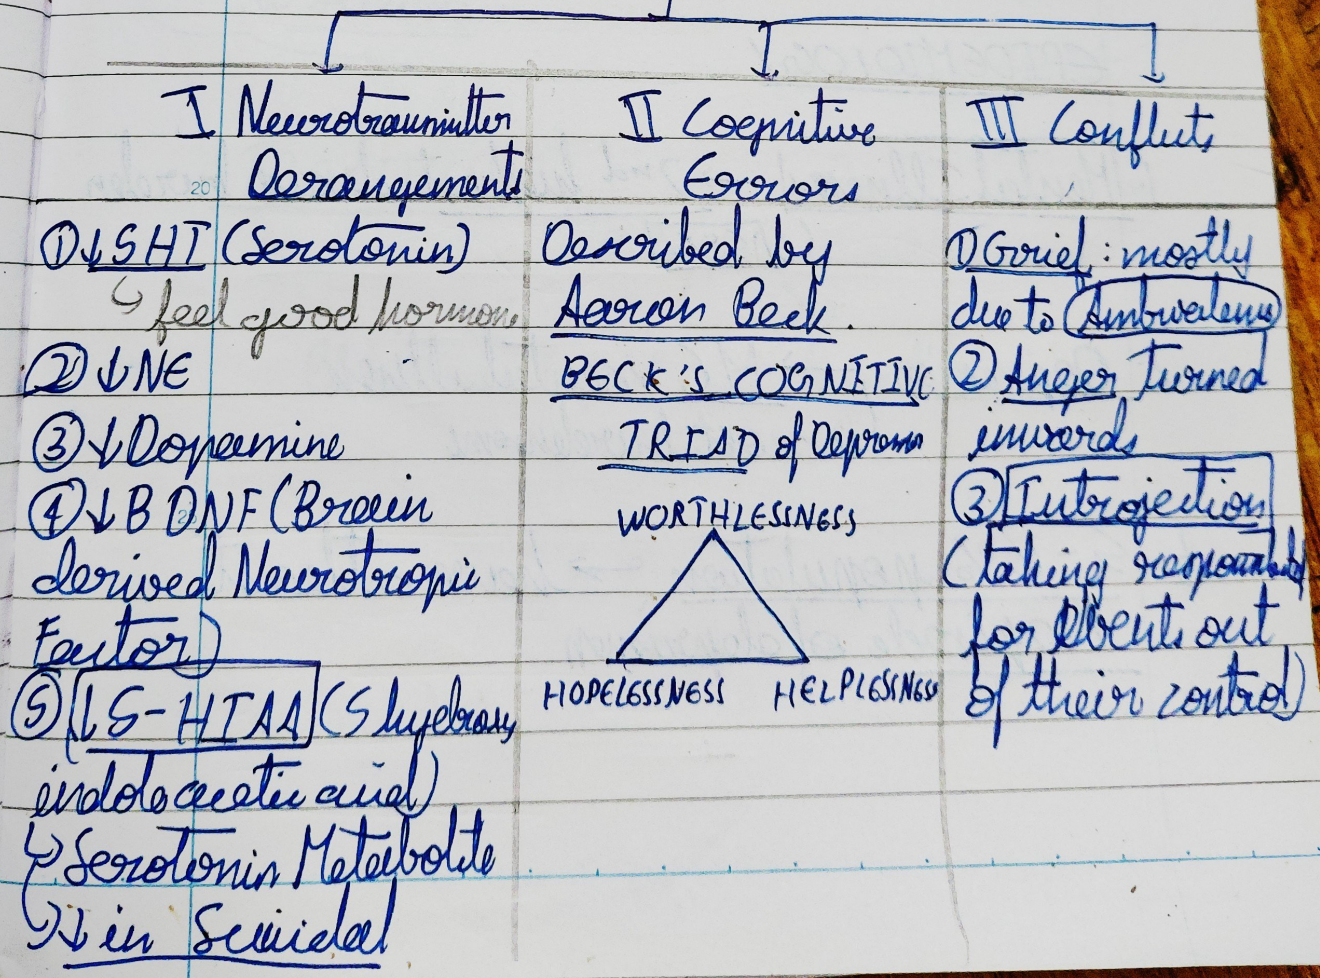 I Neurotransmitter
Derangements
20
① ↓ 5HT (Serotonin)
↳ feel good hormone
② ↓ NE
③ ↓ Dopamine
④ ↓ BDNF (Brain
derived Neurotropic
Factor)
⑤ ↓ 5-HIAA (5 hydroxy
indole acetic acid)
↳ Serotonin Metabolite
↳ ↓ in Suicidal
II Cognitive
Errors
Described by
Aaron Beck.
BECK'S COGNITIVE
TRIAD of Depression
WORTHLESSNESS
HOPELESSNESS HELPLESSNESS
III Conflicts
① Grief : mostly
due to Ambivalence
② Anger Turned
inwards
③ Introjection
(taking responsibility
for Events out
of their control)